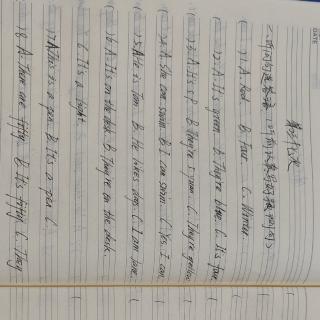 DATE
二、听问句选答语。
( )1. A. Red B. Four C. Winter.
( )2. A. It's green. B. They're blue. C. It's four
( )3. A. It's B. They're 5 yuan. C. They're yellow
( )4. A. She can swim. B. I can swim. C. Yes, I can
( )5. A. He is Tom. B. He likes dogs. C. I am June.
( )6. A. It's on the desk. B. They're on the desk.
C. It's a light.
( )7. A. This is a pen. B. It's a pen. C.
( )8. A. There are fifty. B. It's fifty. C. They